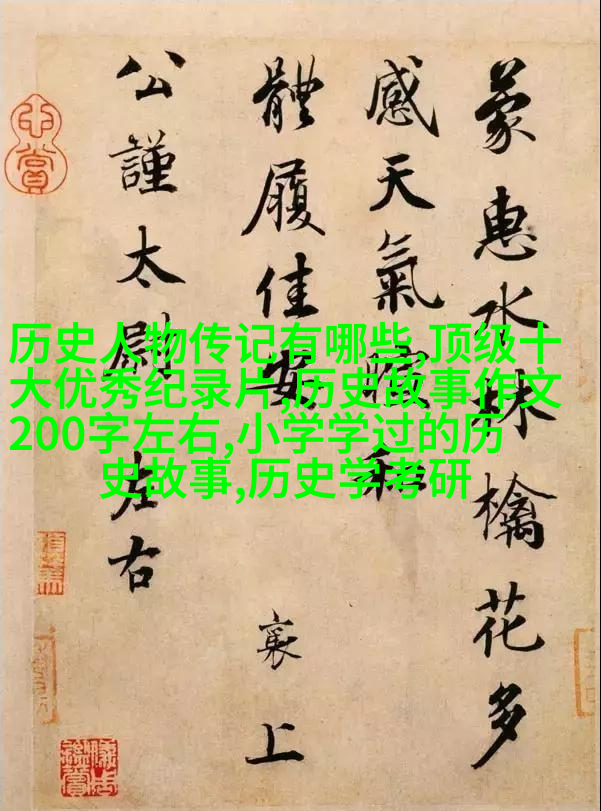 历史人物传记有哪些,顶级十
大优秀纪录片,历史故事作文
200字左右,小学学过的历
史故事,历史学考研
蒙惠水林檎花多
感天氣和
體履佳安
襄上
公謹太尉左右